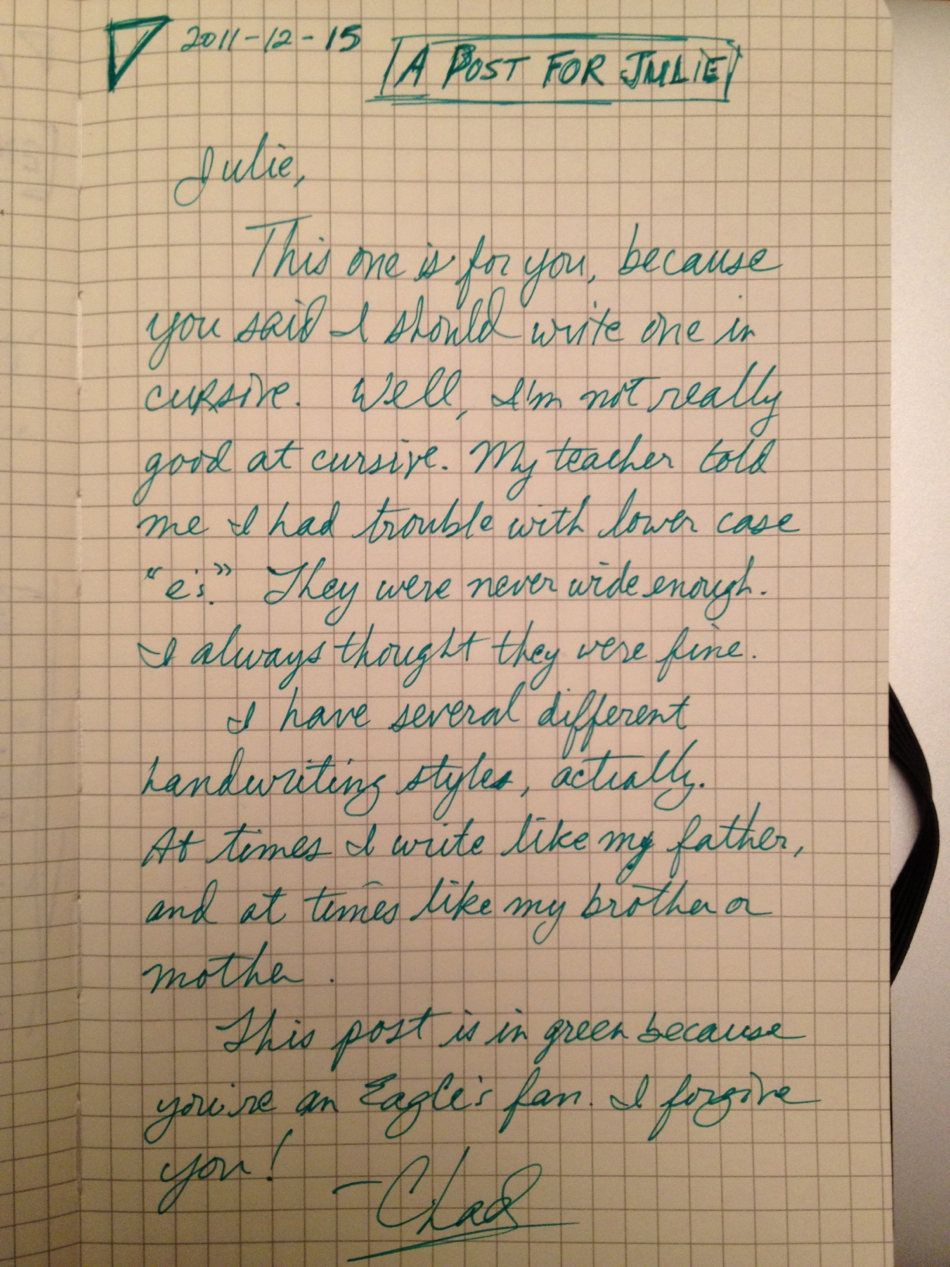 2011-12-15
A POST FOR JULIE
Julie,
This one is for you, because
you said I should write one in
cursive. Well, I'm not really
good at cursive. My teacher told
me I had trouble with lower case
"e's." They were never wide enough.
I always thought they were fine.
I have several different
handwriting styles, actually.
At times I write like my father,
and at times like my brother or
mother.
This post is in green because
you're an Eagle's fan. I forgive
you!
-Chad